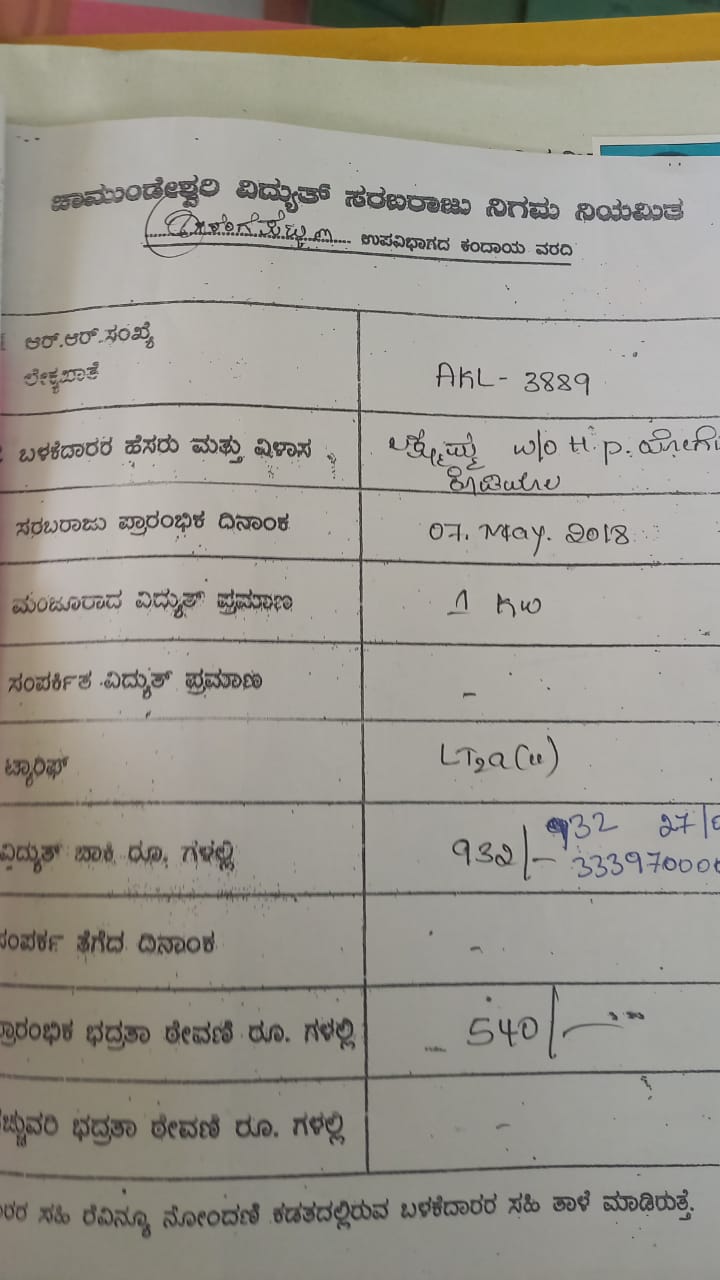 ಚಾಮುಂಡೇಶ್ವರಿ ವಿದ್ಯುತ್ ಸರಬರಾಜು ನಿಗಮ ನಿಯಮಿತ
ಉಪವಿಭಾಗದ ಕಂದಾಯ ವರದಿ
ಆರ್.ಆರ್.ಸಂಖ್ಯೆ
ಲೆಕ್ಕಖಾತೆ
AKL- 3889
ಬಳಕೆದಾರರ ಹೆಸರು ಮತ್ತು ವಿಳಾಸ
w/o H.p.
ಸರಬರಾಜು ಪ್ರಾರಂಭಿಕ ದಿನಾಂಕ
07. May. 2018
ಮಂಜೂರಾದ ವಿದ್ಯುತ್ ಪ್ರಮಾಣ
1 KW
ಸಂಪರ್ಕಿತ ವಿದ್ಯುತ್ ಪ್ರಮಾಣ
-
ಟ್ಯಾರಿಫ್
LT2a(ii)
ವಿದ್ಯುತ್ ಬಾಕಿ ರೂ. ಗಳಲ್ಲಿ
932/-
932 27/
333970000
ಸಂಪರ್ಕ ತೆಗೆದ ದಿನಾಂಕ
-
ಪ್ರಾರಂಭಿಕ ಭದ್ರತಾ ಠೇವಣಿ ರೂ. ಗಳಲ್ಲಿ
540/-
ಚ್ಚುವರಿ ಭದ್ರತಾ ಠೇವಣಿ ರೂ. ಗಳಲ್ಲಿ
-
ರರ ಸಹಿ ರೆವಿನ್ಯೂ ನೋಂದಣಿ ಕಡತದಲ್ಲಿರುವ ಬಳಕೆದಾರರ ಸಹಿ ತಾಳೆ ಮಾಡಿರುತ್ತೆ.